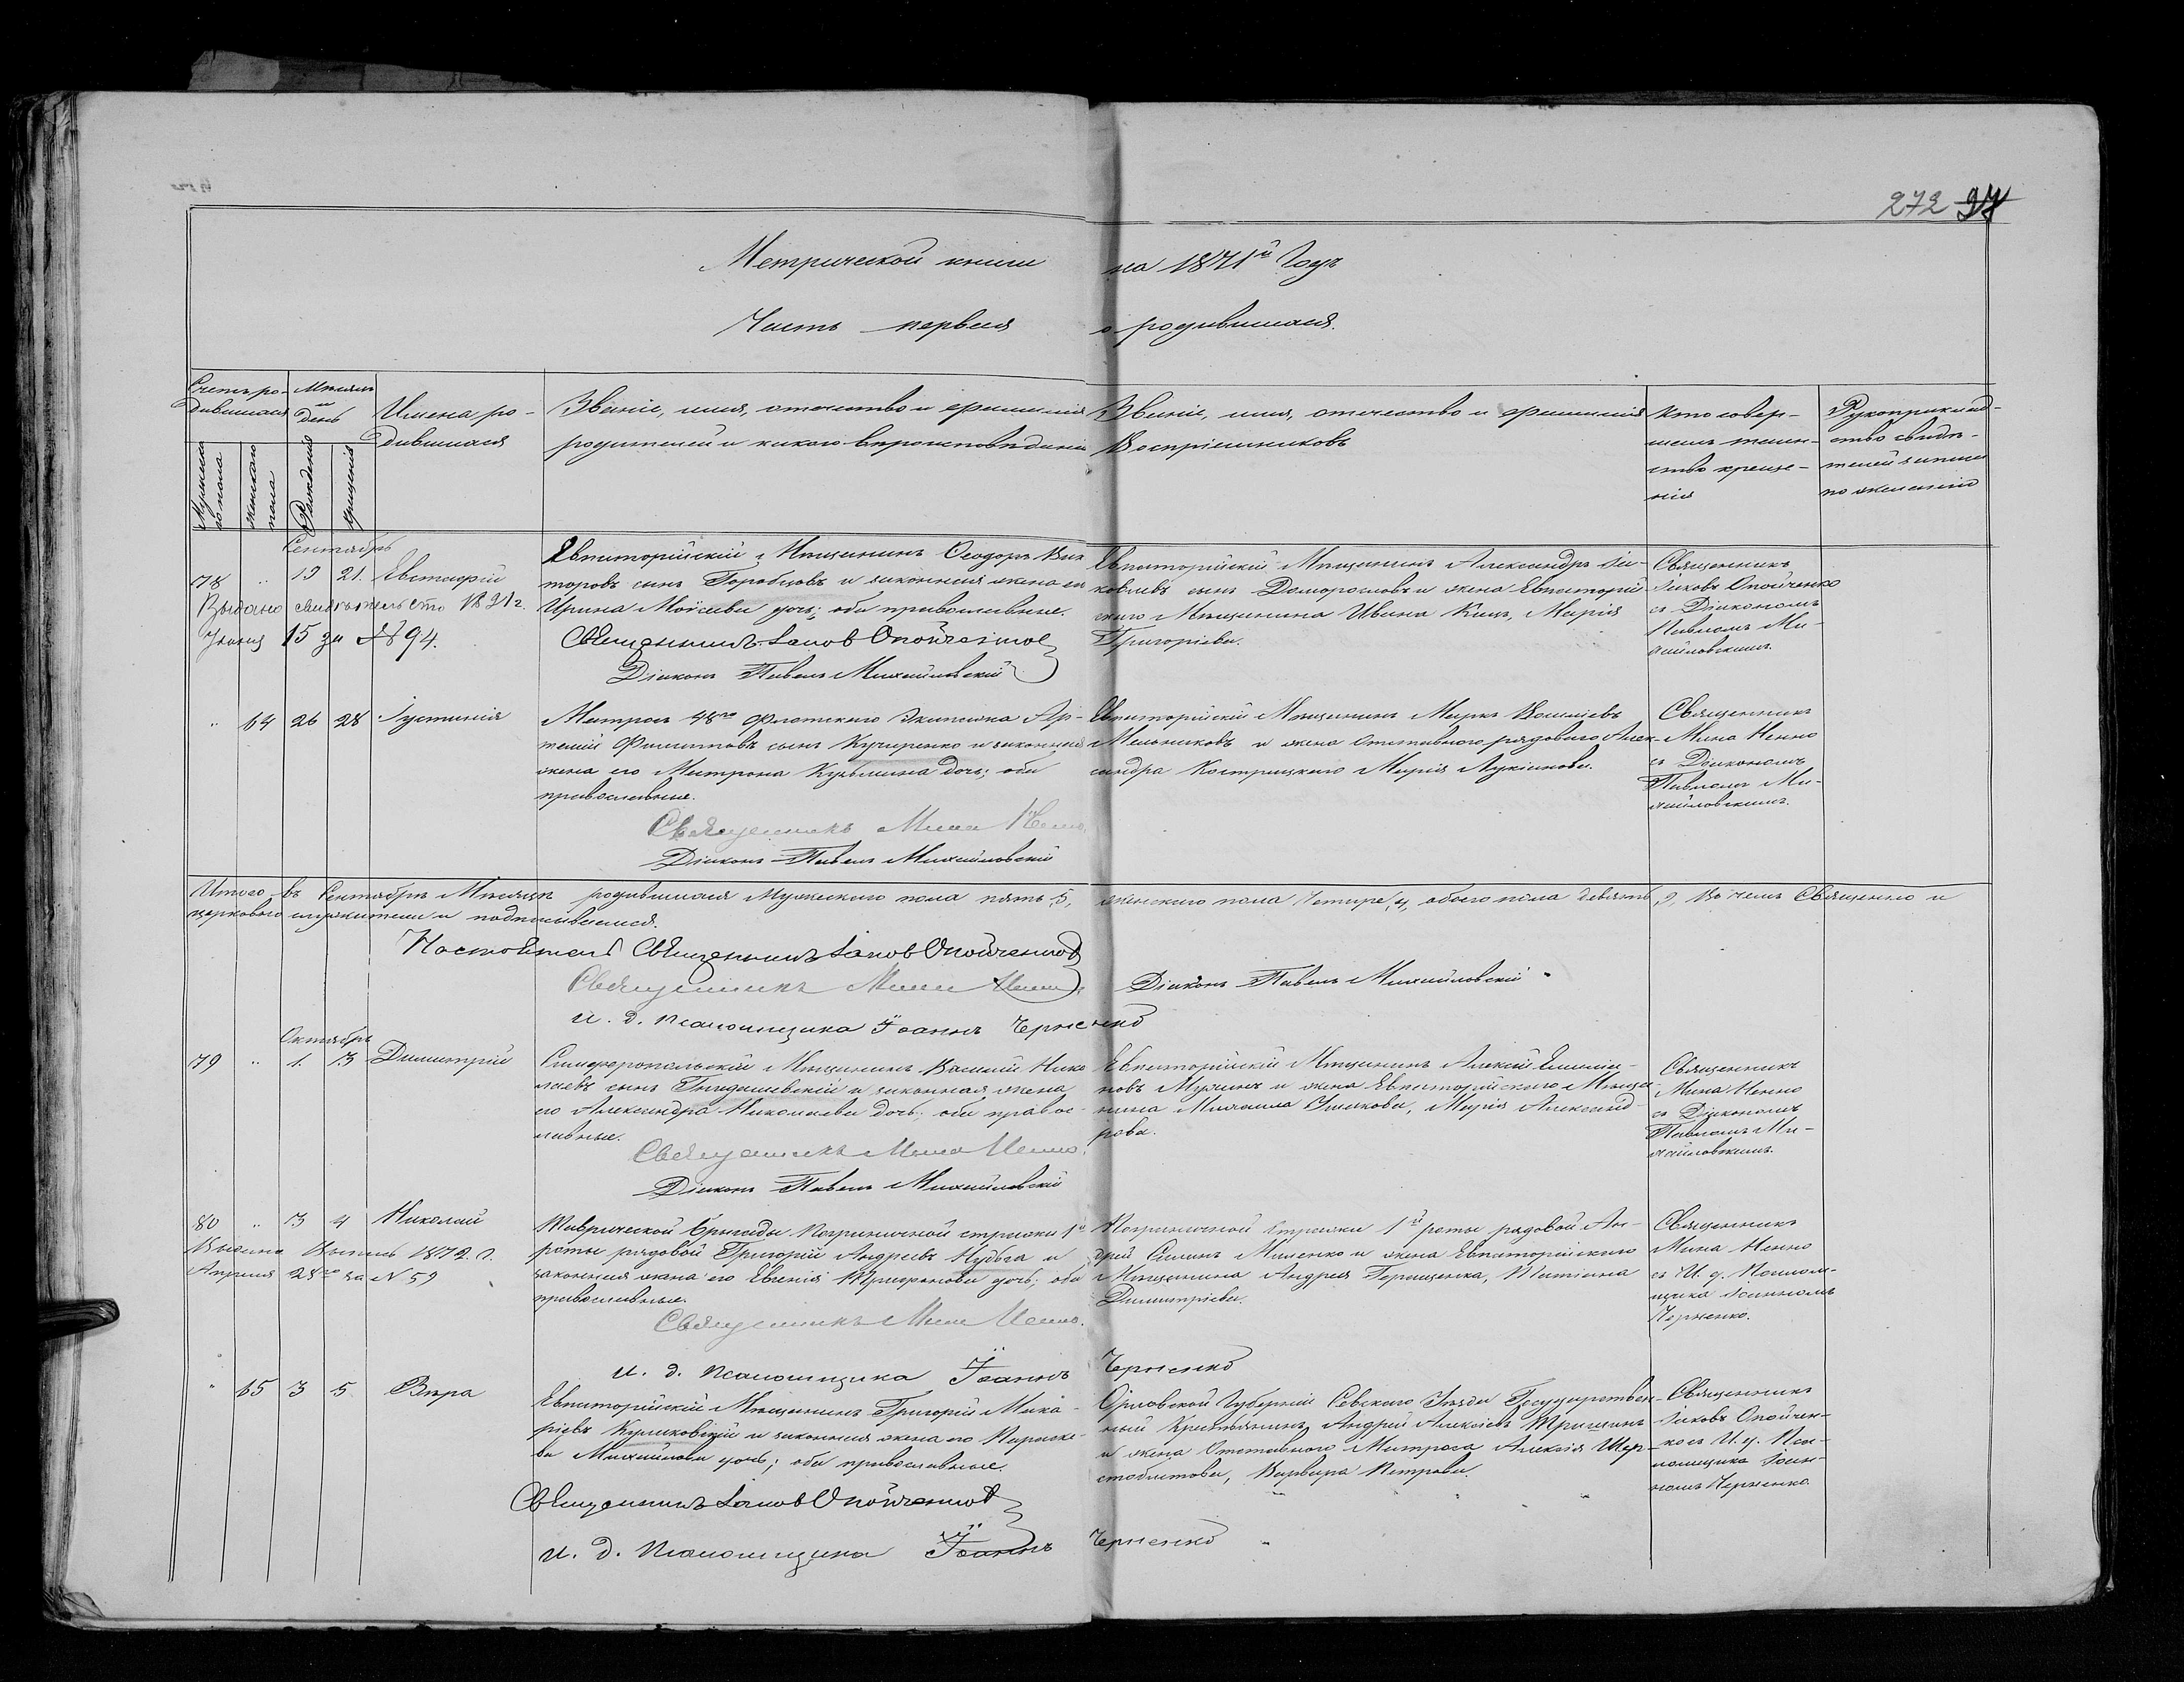 272
Метрической книги на 1871й Годъ
Часть первая о родившихся.
Счетъ ро-
дившихся
Мужеска-
го пола
женскаго
пола
Мѣсяцъ
и
день
Рожденія
крещенія
Имена ро-
дившихся
Званіе, имя, отечество и фамилія
родителей и какого вѣроисповѣданія
Званіе, имя, отчество и фамилія
Воспріемниковъ
Кто совер-
шалъ таин-
ство креще-
нія
Рукоприклад-
ство свидѣ-
телей записи
по желанію
Сентябрь
78 " 19 21. Евстафій
Выдано свидѣтельство 1891г.
Іюня 15 за № 94.
Евпаторійскій Мѣщанинъ Ѳеодоръ Вик-
торовъ сынъ Горобцовъ и законная жена его
Ирина Моисеева дочь; оба православные.
Священникъ Іаковъ Опойченко
Діаконъ Павелъ Михайловскій
Евпаторійскій Мѣщанинъ Александръ Яи-
ковлевъ сынъ Доморословъ и жена Евпаторій-
скаго Мѣщанина Ивана Кацъ, Марія
Григоріева.
Священникъ
Іаковъ Опойченко
съ Діакономъ
Павломъ Ми-
хайловскимъ.
" 64 26 28 Іустинія
Матросъ 48го Флотскаго Экипажа Ар-
темій Филипповъ сынъ Кучеренко и законная
жена его Матрона Кузьмина дочь; оба
православные.
Священникъ Мина Ненно.
Діаконъ Павелъ Михайловскій
Евпаторійскій Мѣщанинъ Маркъ Васильевъ
Мельниковъ и жена отставного рядового Алек-
сандра Кострицкаго Марія Лукіянова.
Священникъ
Мина Ненно
съ Діакономъ
Павломъ Ми-
хайловскимъ.
Итого въ Сентябрѣ Мѣсяцѣ родившихся Мужескаго пола пять, 5, женскаго пола Четыре, 4, обоего пола девять, 9, Въ чемъ Священно и
церковно служители и подписываемся.
Настоятель Священникъ Іаковъ Опойченко
Священникъ Мина Ненно. Діаконъ Павелъ Михайловскій
и. д. псаломщика Іоаннъ Черненко
Октябрь
79 " 1. 3 Димитрій
Симферопольскій Мѣщанинъ Василій Нико-
лаевъ сынъ Гнидашевскій и законная жена
его Александра Николаева дочь; оба правос-
лавные.
Священникъ Мина Ненно.
Діаконъ Павелъ Михайловскій
Евпаторійскій Мѣщанинъ Алексій Емилія-
новъ Мужинъ и жена Евпаторійскаго Мѣща-
нина Михаила Ушакова, Марія Александ-
рова.
Священникъ
Мина Ненно
съ Діакономъ
Павломъ Ми-
хайловскимъ.
80 " 3 4 Николай
Выдана Выпись 1872. г.
Апрѣля 28го за № 59
Таврической бригады Пограничной стражи 1й
роты рядовой Григорій Андреевъ Кудьга и
законная жена его Евгенія Трифонова дочь; оба
православные.
Священникъ Мина Ненно.
и. д. псаломщика Іоаннъ Черненко
Пограничной стражи 1й роты рядовой Ан-
дрей Силинъ Миленко и жена Евпаторійскаго
Мѣщанина Андрея Геращенка, Татіана
Димитріева.
Священникъ
Мина Ненно
съ И. д. Псалом-
щика Іоанномъ
Черненко.
" 65 3 5 Вѣра
Евпаторійскій Мѣщанинъ Григорій Мака-
ріевъ Куликовскій и законная жена его Параске-
ва Михайлова дочь; оба православные.
Священникъ Іаковъ Опойченко
и. д. псаломщика Іоаннъ Черненко
Орловской Губерніи Севскаго Уѣзда Государствен-
ный Крестьянинъ Андрей Алексѣевъ Тришинъ
и жена Отставного Матроса Алексія Шер-
стобитова, Варвара Петрова.
Священникъ
Іаковъ Опойчен-
ко съ И. д. Пса-
ломщика Іоан-
номъ Черненко.